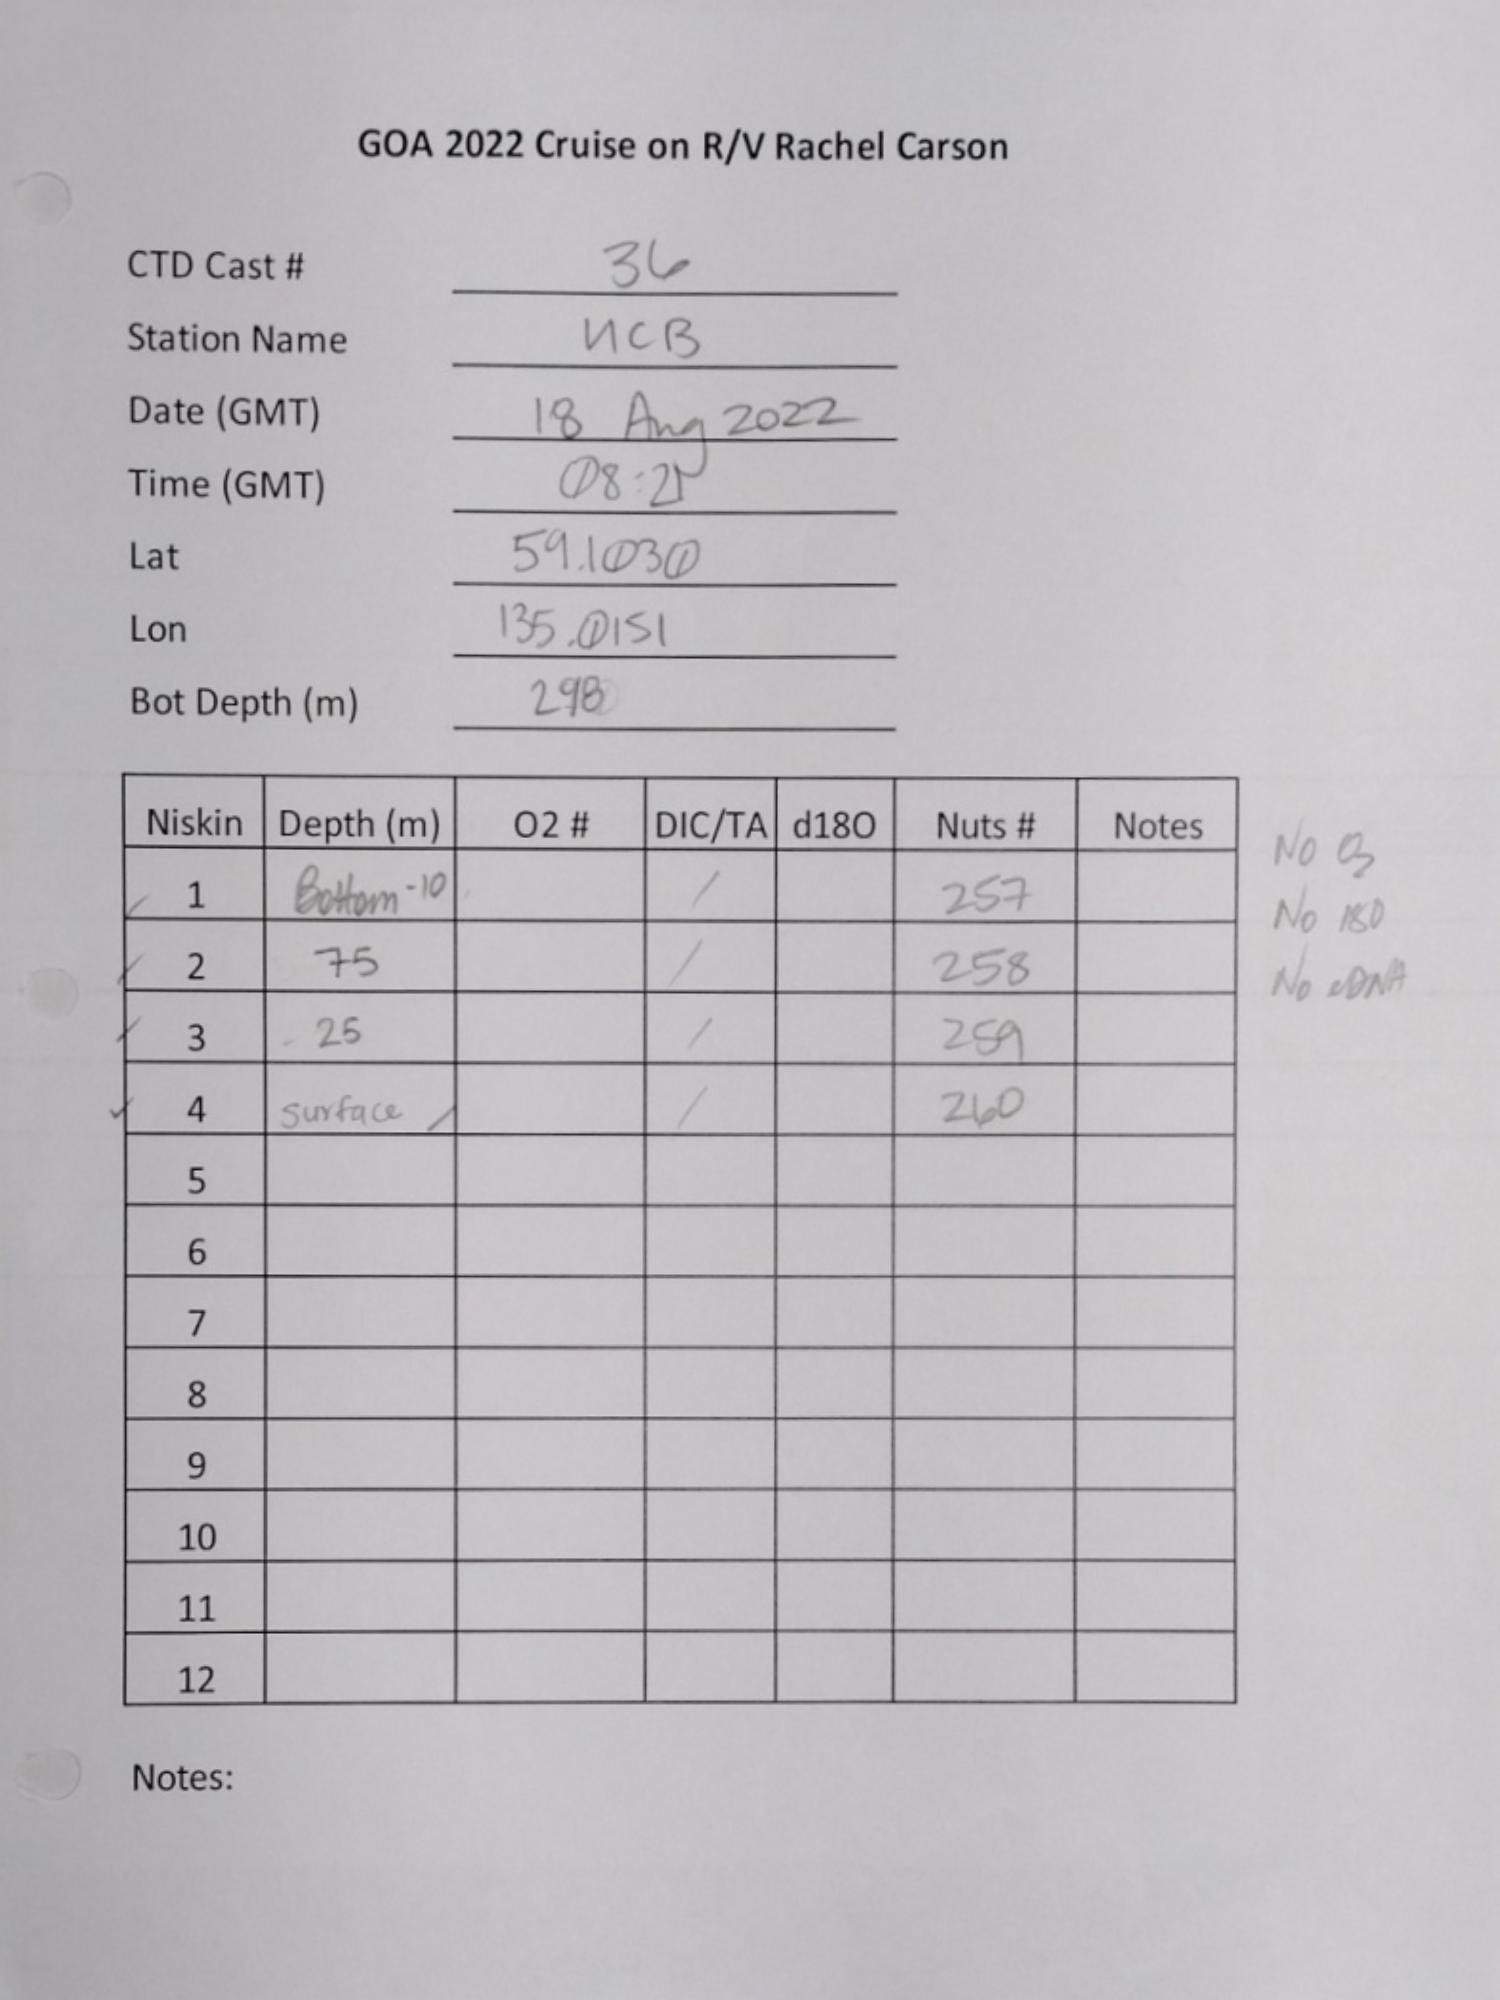 GOA 2022 Cruise on R/V Rachel Carson
CTD Cast # 36
Station Name UCB
Date (GMT) 18 Aug 2022
Time (GMT) 08:21
Lat 59.1030
Lon 135.0151
Bot Depth (m) 298
Niskin Depth (m) O2 # DIC/TA d18O Nuts # Notes
1 Bottom -10 / 257
2 75 / 258
3 25 / 259
4 surface / 260
5
6
7
8
9
10
11
12
No
No 18O
No eDNA
Notes: